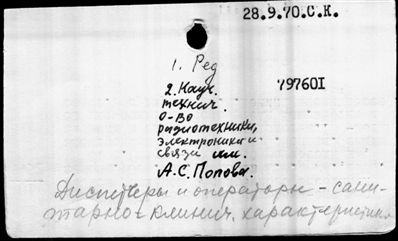 28.9.70.С.К.
1. Ред
2. Науч.
797601
технич.
О-во
радиотехники,
электроники и
связи им.
А.С. Попова.
Диспетчеры и операторы – сани-
тарно-клинич. характеристика